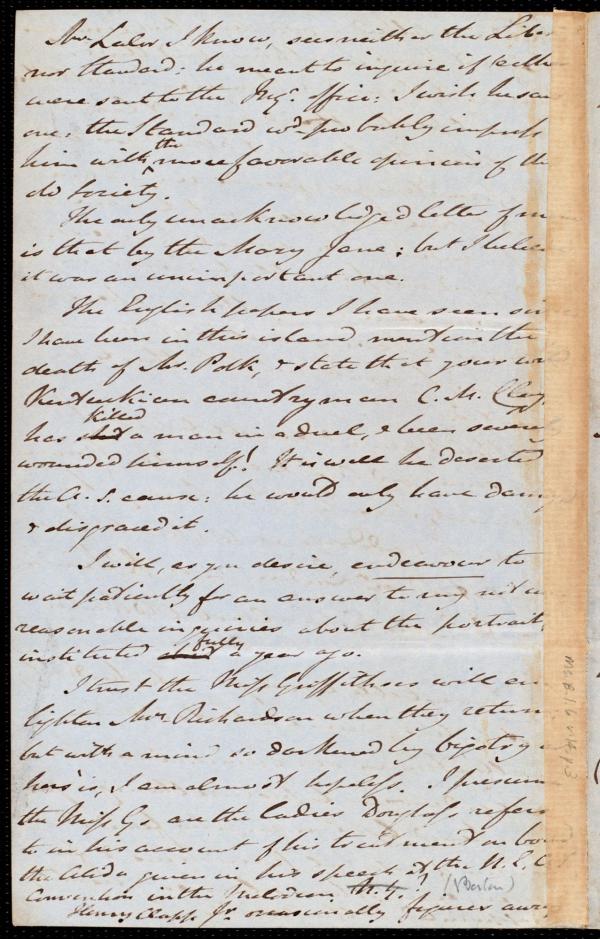 Mr Lalor I know, sees neither the Liber
nor Standard: he meant to inquire if either
were sent to the office: I wish he saw
one: the Standard wd probably impress
him with the more favorable opinion of the
do Society.
The only unacknowledged letter from
is that by the Mary Jane; but I believe
it was an unimportant one.
The English papers I have seen since
I have been in this island mention the
death of Mr. Polk, & state that your
Kentuckian countryman C. M. Clay,
killed
has shot a man in a duel, & been severely
wounded himself! It is well he deserted
the A. S. cause: he would only have damag
& disgraced it.
I will, as you desire, endeavour to
wait patiently for an answer to my not un
reasonable inquiries about the portrait,
instituted fully a year ago.
I trust the Miss Griffiths will en
lighten Mrs Richardson when they return
but with a mind so darkened by bigotry as
hers is, I am almost hopeless. I presume
the Miss Gs are the ladies Douglass refers
to in his account of his treatment on board
the Alida given in his speech at the N. E. A.
Convention in the Melodeon, ! (Boston)
Henry Clapp Jr. occasionally figures away
Ms.B.1.6